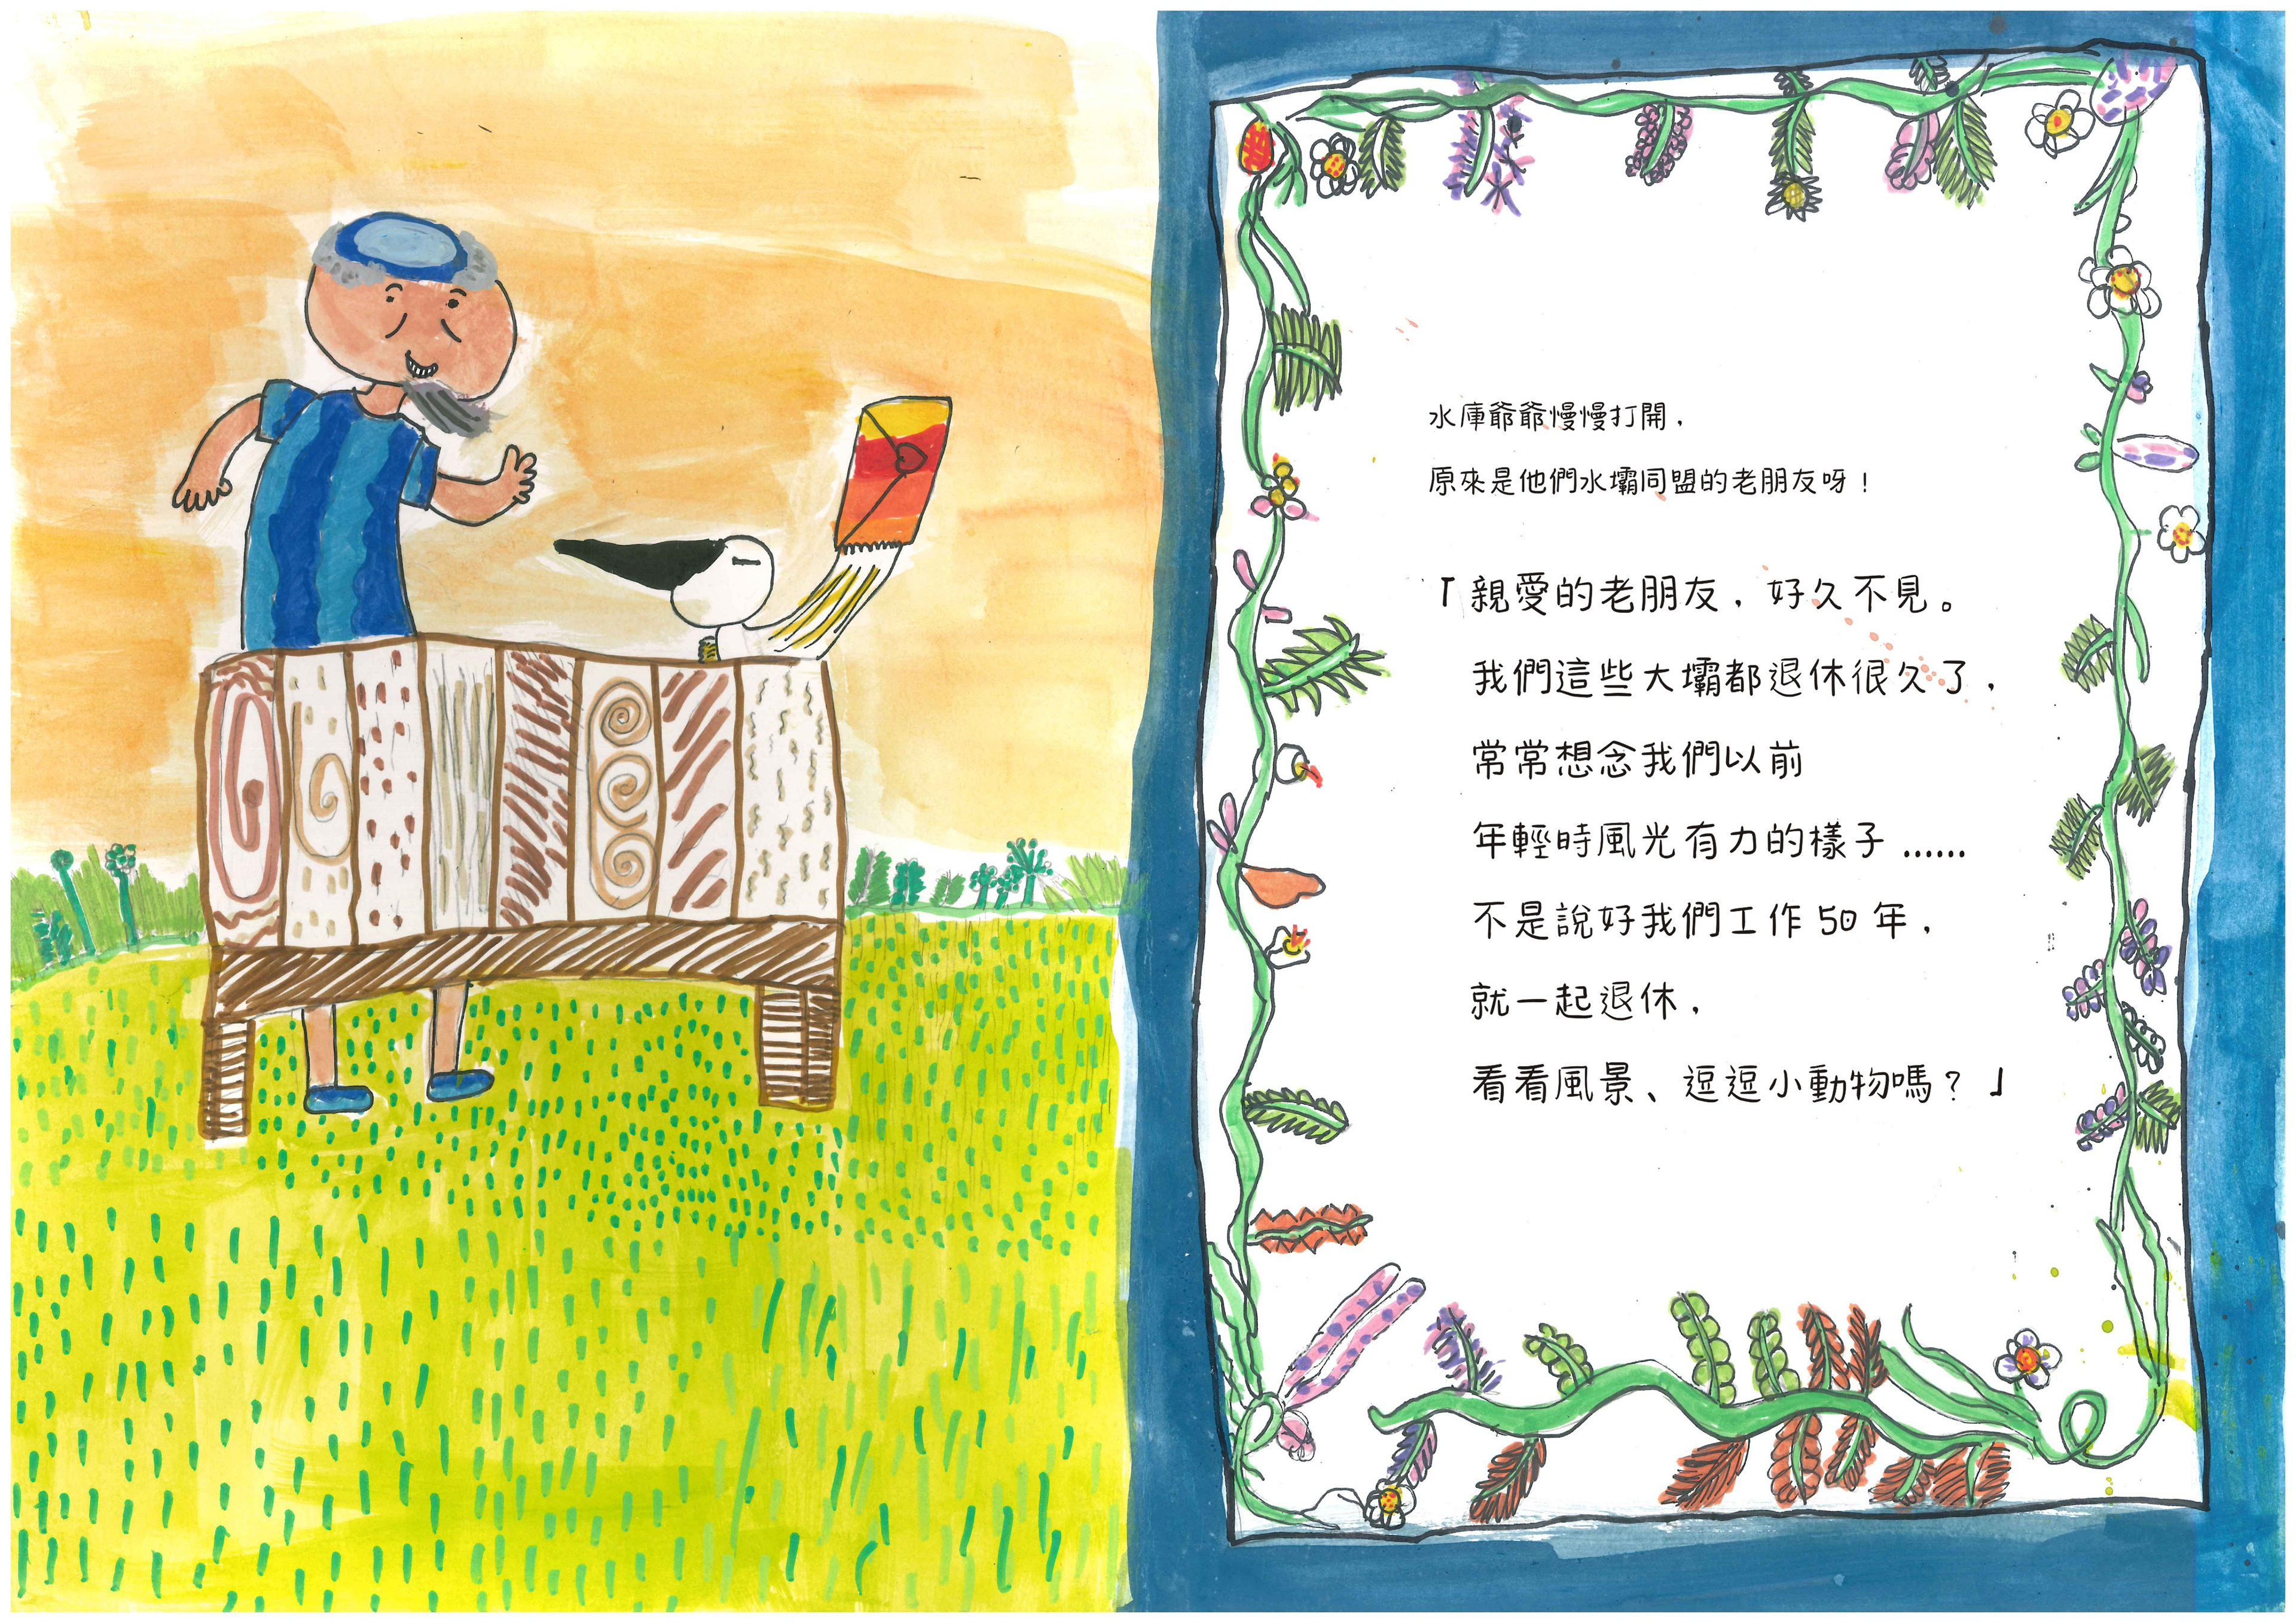 水庫爺爺慢慢打開，
原來是他們水壩同盟的老朋友呀！
「親愛的老朋友，好久不見。
我們這些大壩都退休很久了，
常常想念我們以前
年輕時風光有力的樣子……
不是說好我們工作50年，
就一起退休，
看看風景、逗逗小動物嗎？」